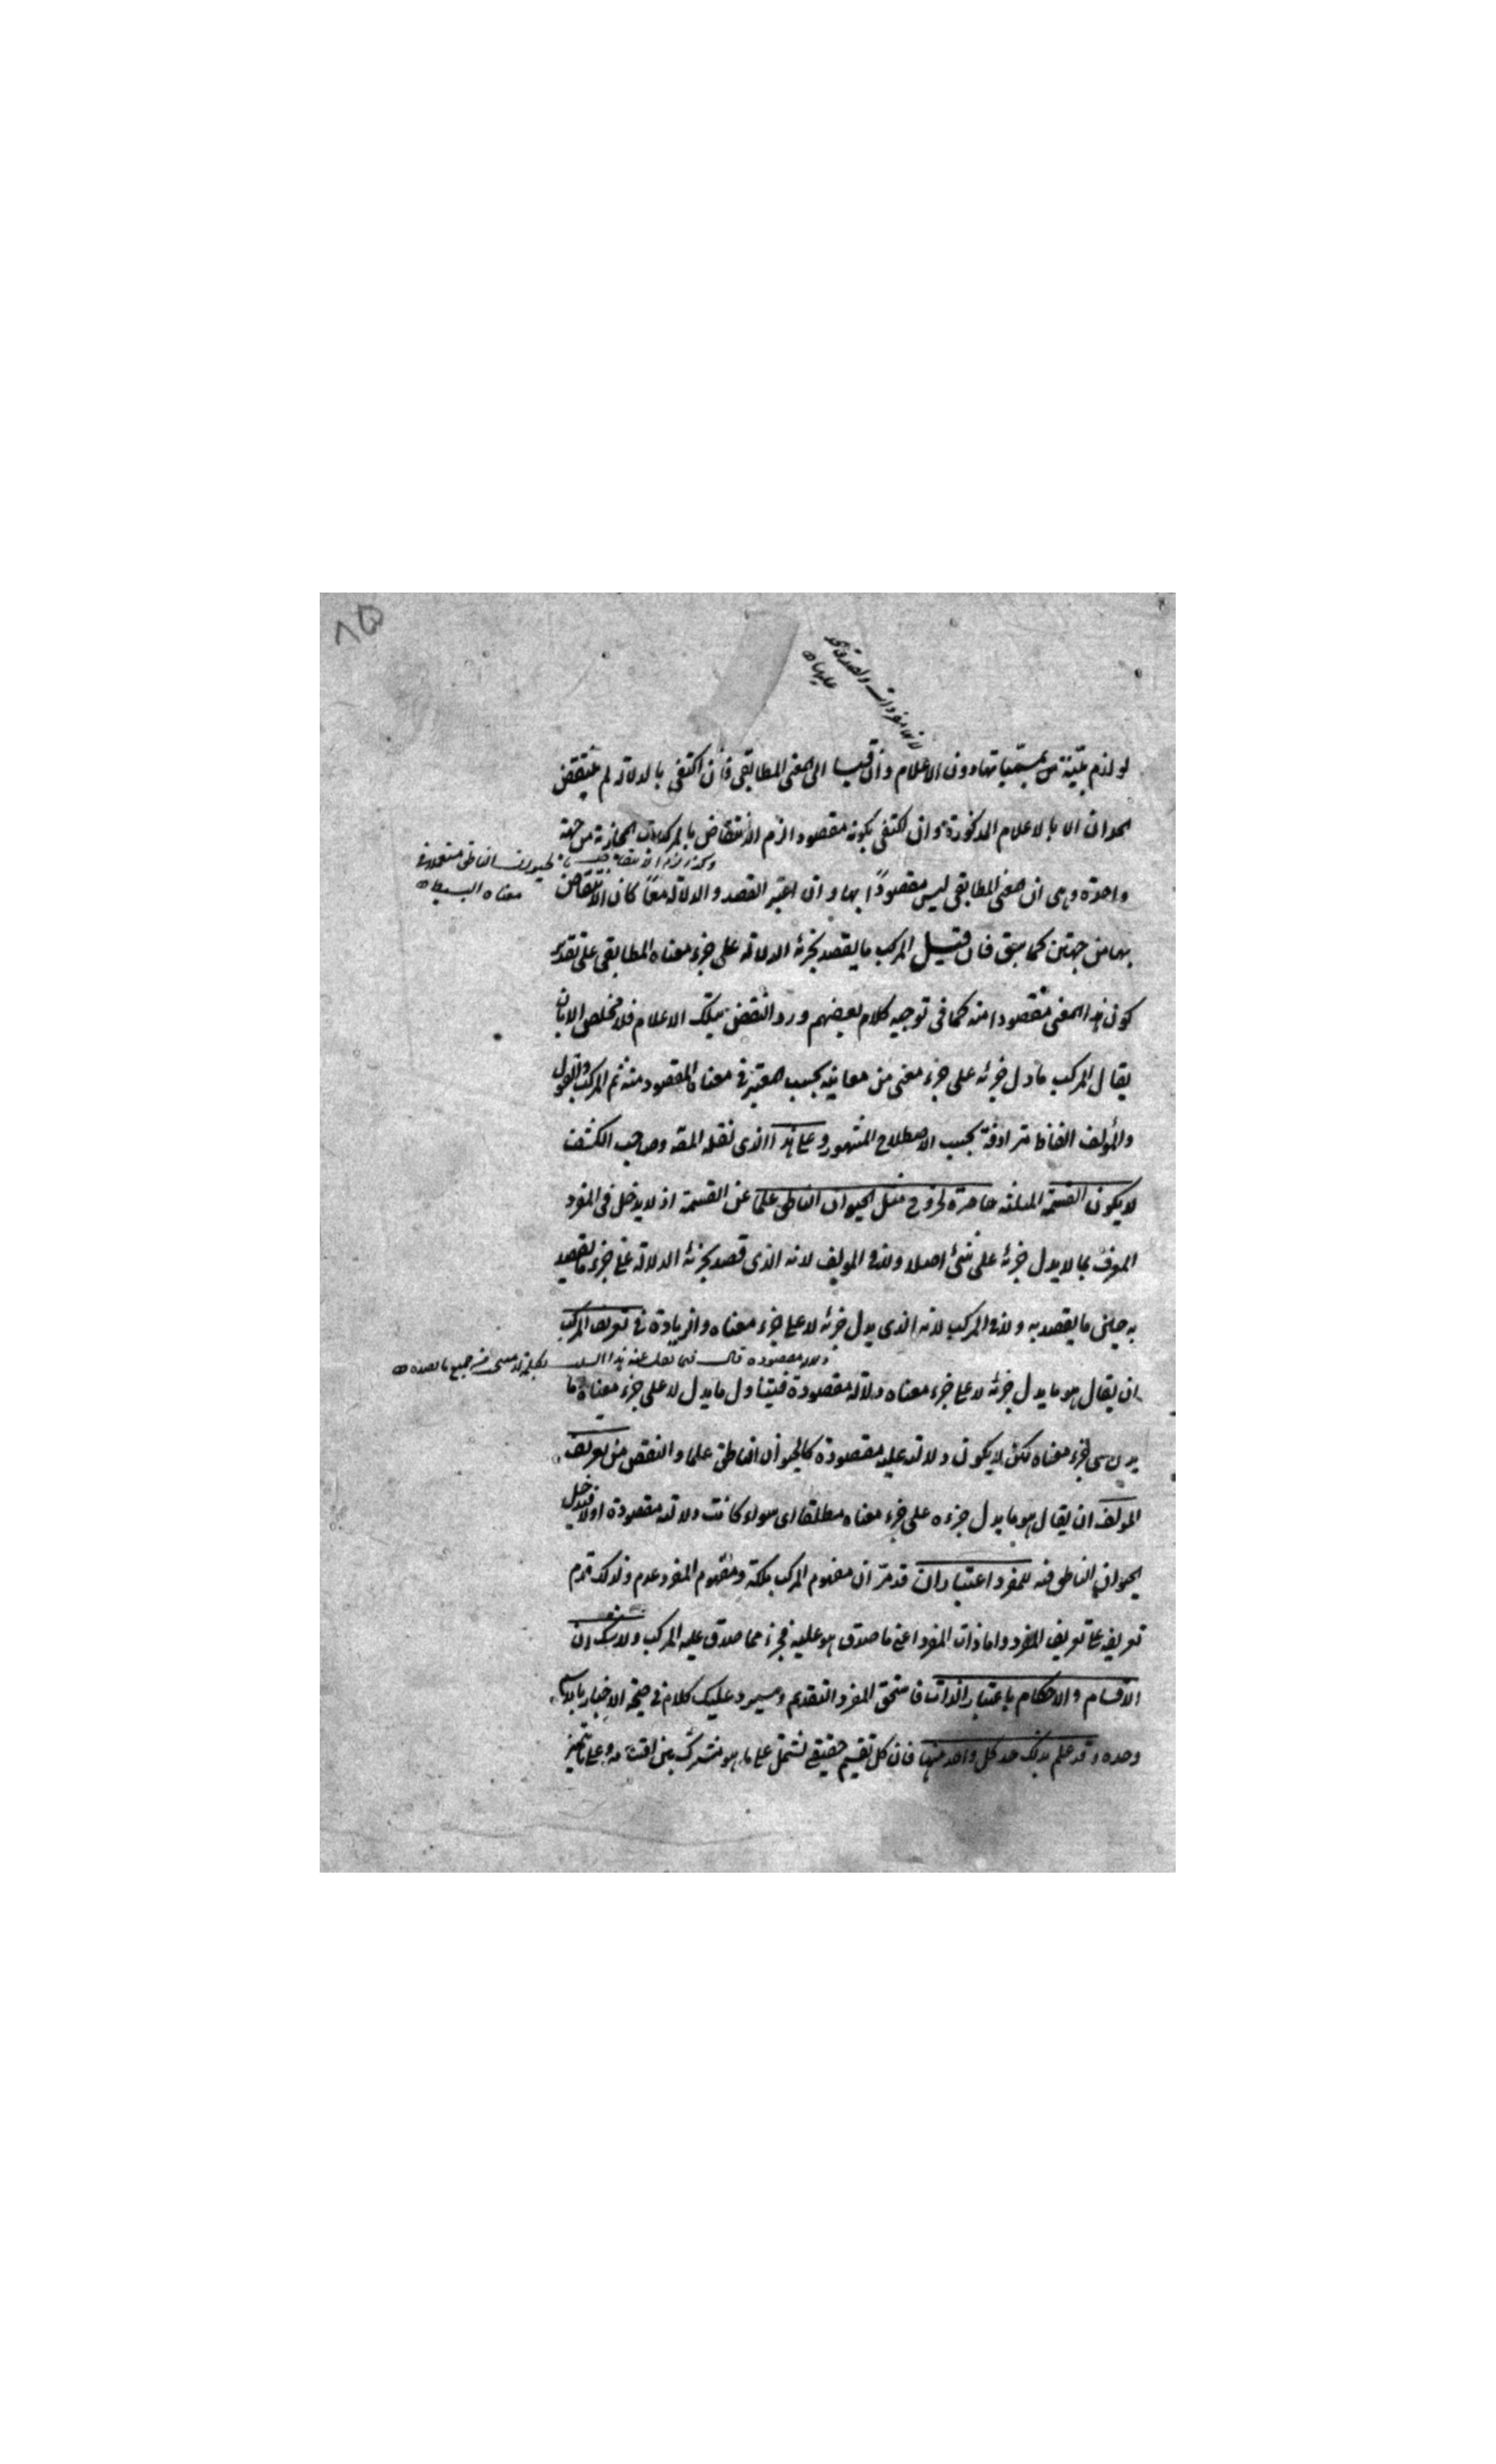 ٨٥
لانها مفردات والصدق
عليها ه
لو لازم بينة من مسمياتها دون الاعلام وان قيسا الى المعنى المطابقى فان اكتفى بالدلالة لم ينتقض
الحدان الا بالاعلام المذكورة وان اكتفى بكونه مقصودا لزم الانتقاض بالمركبات المجازية من جهة
وكذا لزم الانتقاض بالحيوان الناطق مستعملا فى
معناه البسيط ه
واحدة وهى ان معنى المطابقى ليس مقصودًا بها وان اعتبر القصد والدلالة معًا كان الانتقاض
بها من جهتين كما سبق فان قيل المركب ما يقصد بجزئه الدلالة على جزء معناه المطابقى على تقدير
كون هذا المعنى مقصودا منه كما فى توجيه كلام بعضهم ورد النقض بتلك الاعلام فلا مخلص الا بان
يقال المركب ما دل جزئه على جزء معنى من معانيه بحسب معتبر فى معناه المقصود منه ثم المركب والقول
والمؤلف الفاظ مترادفة بحسب الاصطلاح المشهور وعلى هذا الذى نقله المصه وصاحب الكشف
لا يكون القسمة المثلثة حاصرة لخروج مثل الحيوان الناطق علما عن القسمة اذ لا يدخل فى المفرد
المعرف بما لا يدل جزئه على شئ اصلا ولا فى المولف لانه الذى قصد بجزئه الدلالة على جزء ما يقصد
به حين ما يقصد به ولا فى المركب لانه الذى يدل جزئه لا على جزء معناه والزيادة فى تعريف المركب
دلالة مقصودة قال فيما نقل عنه هذا جميع ما قصده ه
ان يقال هو ما يدل جزئه لا على جزء معناه دلالة مقصودة فيتناول ما يدل لا على جزء معناه ما
يدل على جزء معناه لكن لا يكون دلالته عليه مقصودة كالحيوان الناطق علما والنقض من تعريف
المولف ان يقال هو ما يدل جزءه على جزء معناه مطلقا اى سواء كانت دلالته مقصودة اولا فيدخل
الحيوان الناطق فيه للمفرد اعتباران قد مرّ ان مفهوم المركب ملكة ومفهوم المفرد عدم ولذلك قدم
تعريفه على تعريف المفرد واما ذات المفرد اعنى ما صدق هو عليه فجزء مما صدق عليه المركب ولا شك ان
الاقسام والاحكام باعتبار الذات فاستحق المفرد التقديم وسيرد عليك كلام فى صحة الاخبار
وحده وقد علم بذلك حد كل واحد منها فان كل تقسيم حقيقى يشتمل على ما هو مشترك بين اقسامه وعلى ما يميز